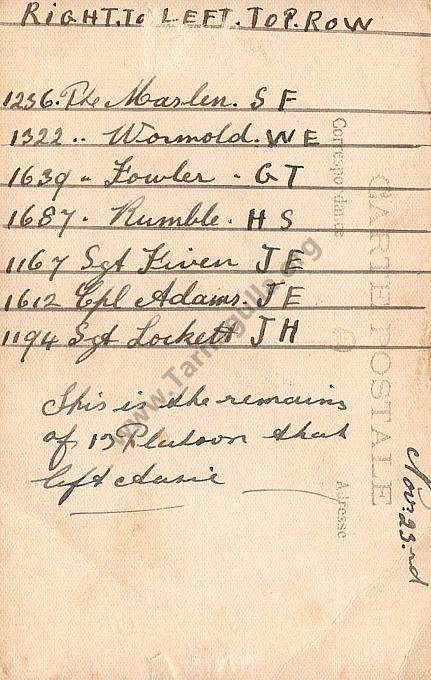 RIGHT.To LEFT.TOP.ROW
1236. Pte Marlen. S F
1322 .. Wormold. W E
1639 " Fowler - G T
1687 . Rumble. H S
1167 Sgt Fiven J E
1612 Cpl Adams. J E
1194 Sgt Lockett J H
This is the remains
of 13 Plutoon that
left Aussie
Nov. 23.rd
CARTE POSTALE
Correspondance
Adresse
www.Tarnagulla.org